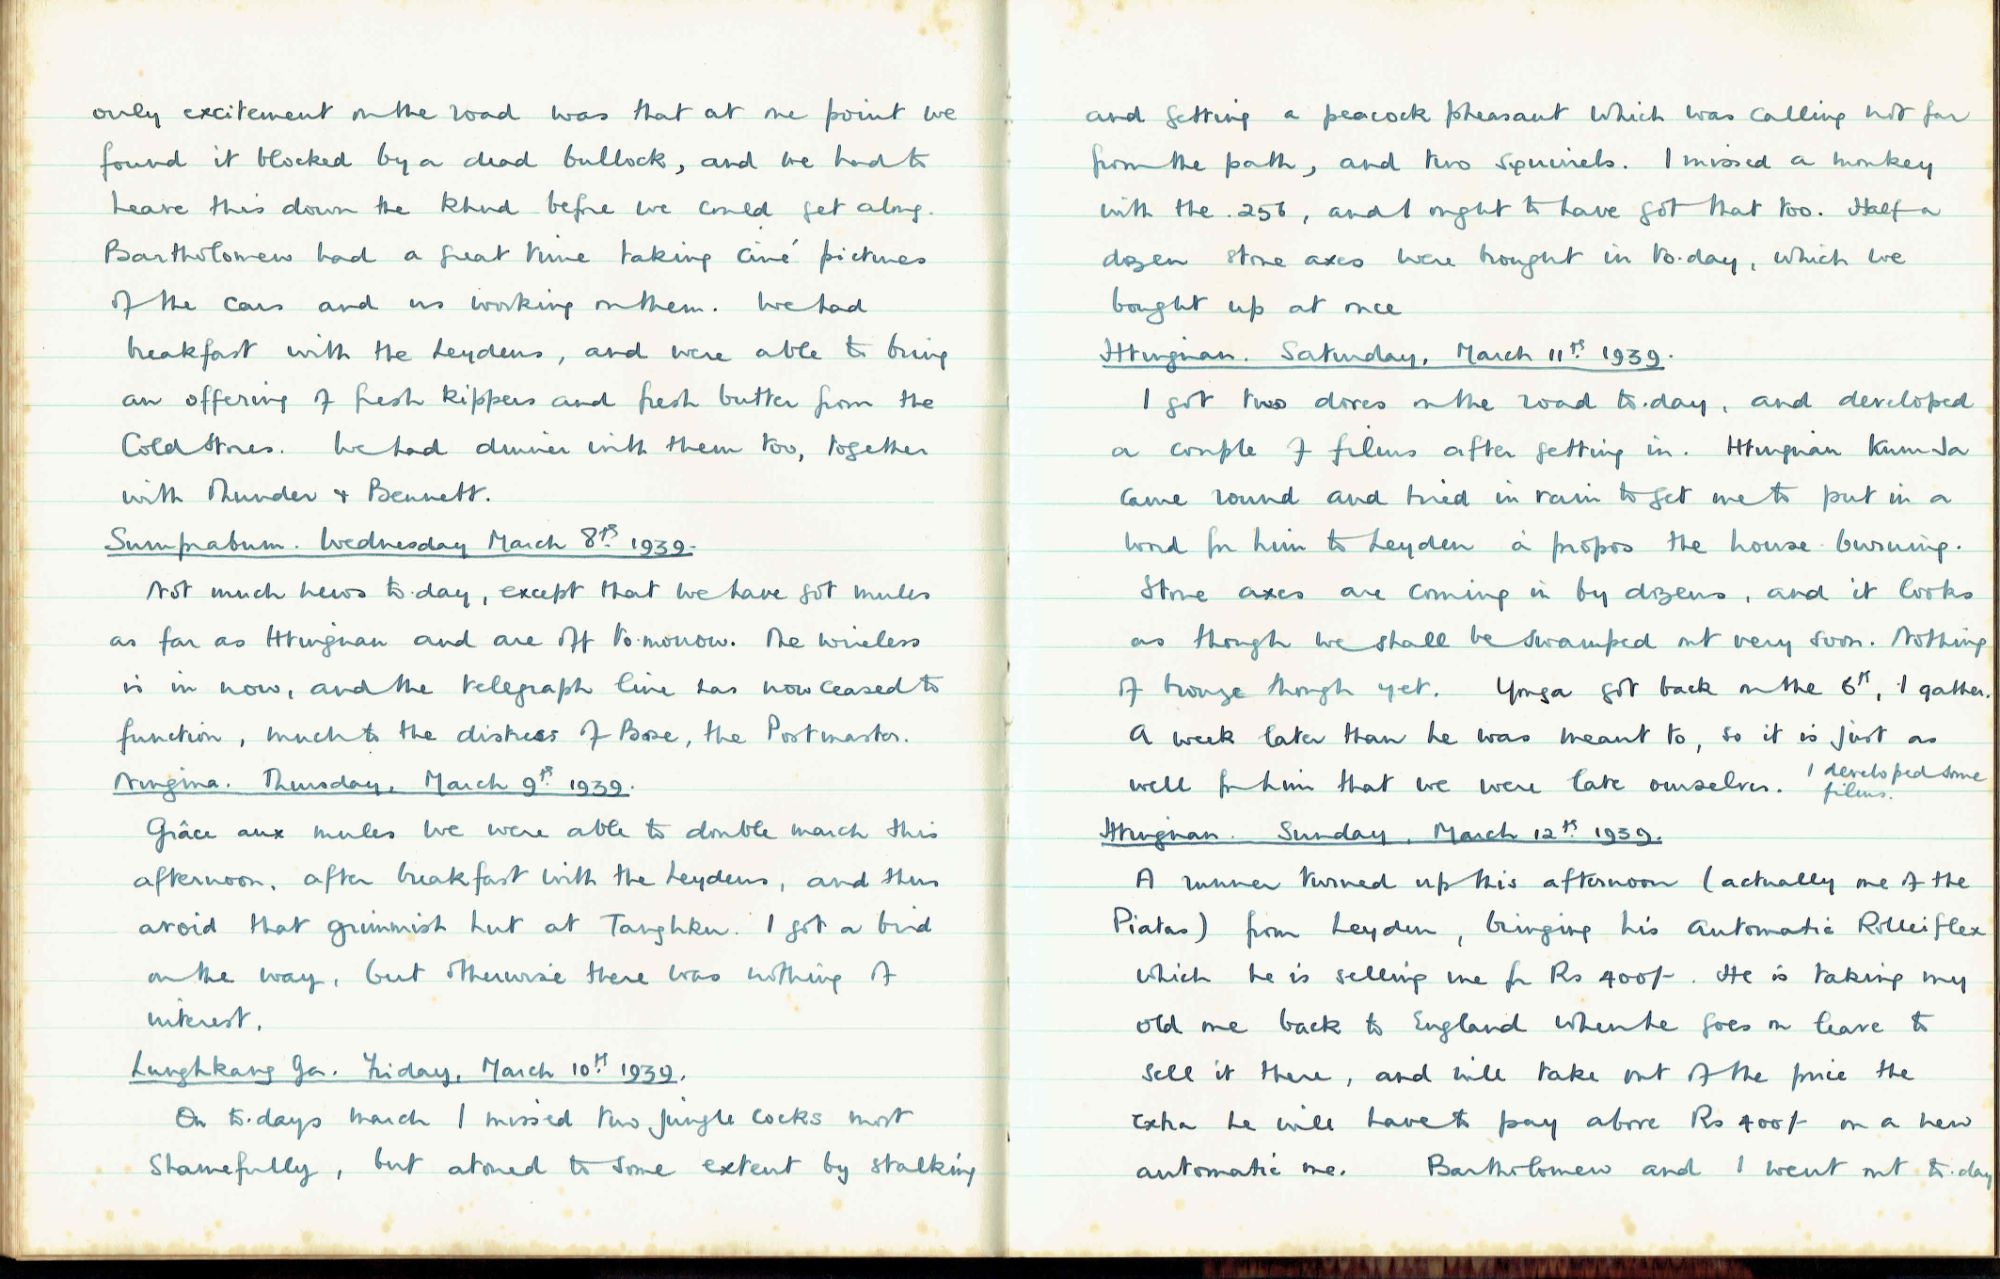 only excitement on the road was that at one point we
found it blocked by a dead bullock, and we had to
heave this down the khud before we could get along.
Bartholomew had a great time taking ciné pictures
of the cars and us working on them. We had
breakfast with the Leydens, and were able to bring
an offering of fresh kippers and fresh butter from the
Cold Stores. We had dinner with them too, together
with Thunder & Bennett.
Sumprabum. Wednesday March 8th 1939.
Not much news to-day, except that we have got mules
as far as Htingnan and are off to-morrow. The wireless
is in now, and the telegraph line has now ceased to
function, much to the distress of Bose, the Postmaster.
Ningma. Thursday, March 9th 1939.
Grâce aux mules we were able to double march this
afternoon, after breakfast with the Leydens, and thus
avoid that grimmish hut at Tanghku. I got a bird
on the way, but otherwise there was nothing of
interest.
Lunghkang Ga. Friday, March 10th 1939.
On to-days march I missed two jungle cocks most
shamefully, but atoned to some extent by stalking
and getting a peacock pheasant which was calling not far
from the path, and two squirrels. I missed a monkey
with the .256, and I ought to have got that too. Half a
dozen stone axes were brought in to-day, which we
bought up at once
Htingnan. Saturday, March 11th 1939.
I got two doves on the road to-day, and developed
a couple of films after getting in. Htingnan Kumja
came round and tried in vain to get me to put in a
word for him to Leyden à propos the house burning.
Stone axes are coming in by dozens, and it looks
as though we shall be swamped out very soon. Nothing
of bronze though yet. Yonga got back on the 6th, I gather.
A week later than he was meant to, so it is just as
well for him that we were late ourselves. I developed some
films.
Htingnan. Sunday, March 12th 1939.
A runner turned up this afternoon (actually one of the
Piatas) from Leyden, bringing his automatic Rolleiflex
which he is selling me for Rs 400/-. He is taking my
old one back to England when he goes on leave to
sell it there, and will take out of the price the
extra he will have to pay above Rs 400/- on a new
automatic one. Bartholomew and I went out to-day